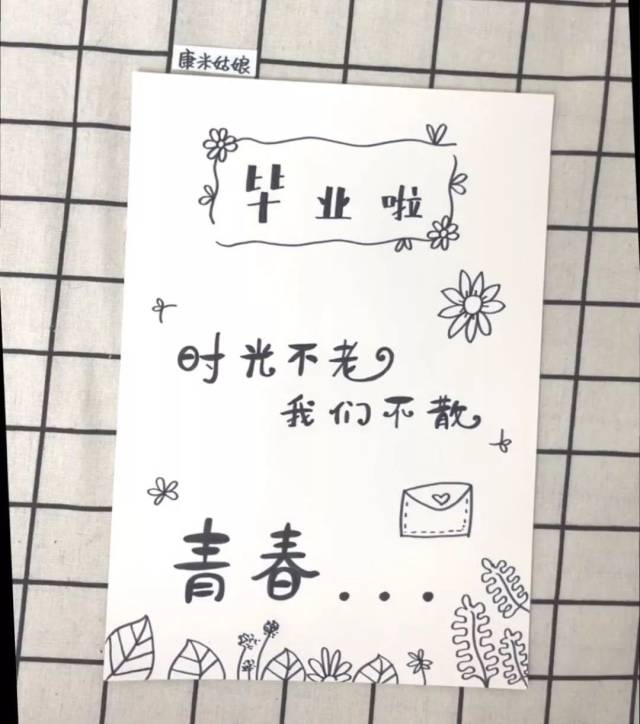 康米姑娘
毕业啦
时光不老
我们不散
青春...